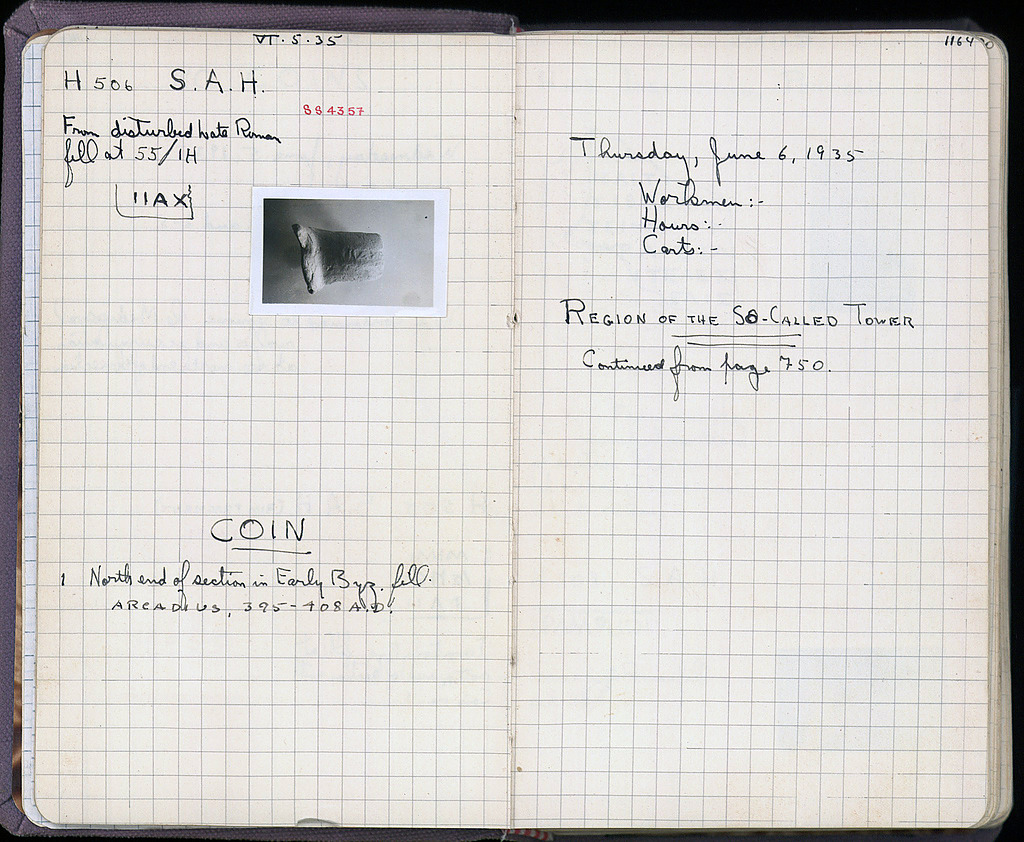 VI·5·35
H 506 S.A.H.
SS 4357
From disturbed Late Roman
fill at 55/ΙΗ
ΙΙΑΧ
COIN
1 North end of section in Early Byz. fill.
ARCADIUS, 395-408 A.D.
1164
Thursday, June 6, 1935
Workmen:-
Hours:-
Carts:-
REGION OF THE SO-CALLED TOWER
Continued from page 750.